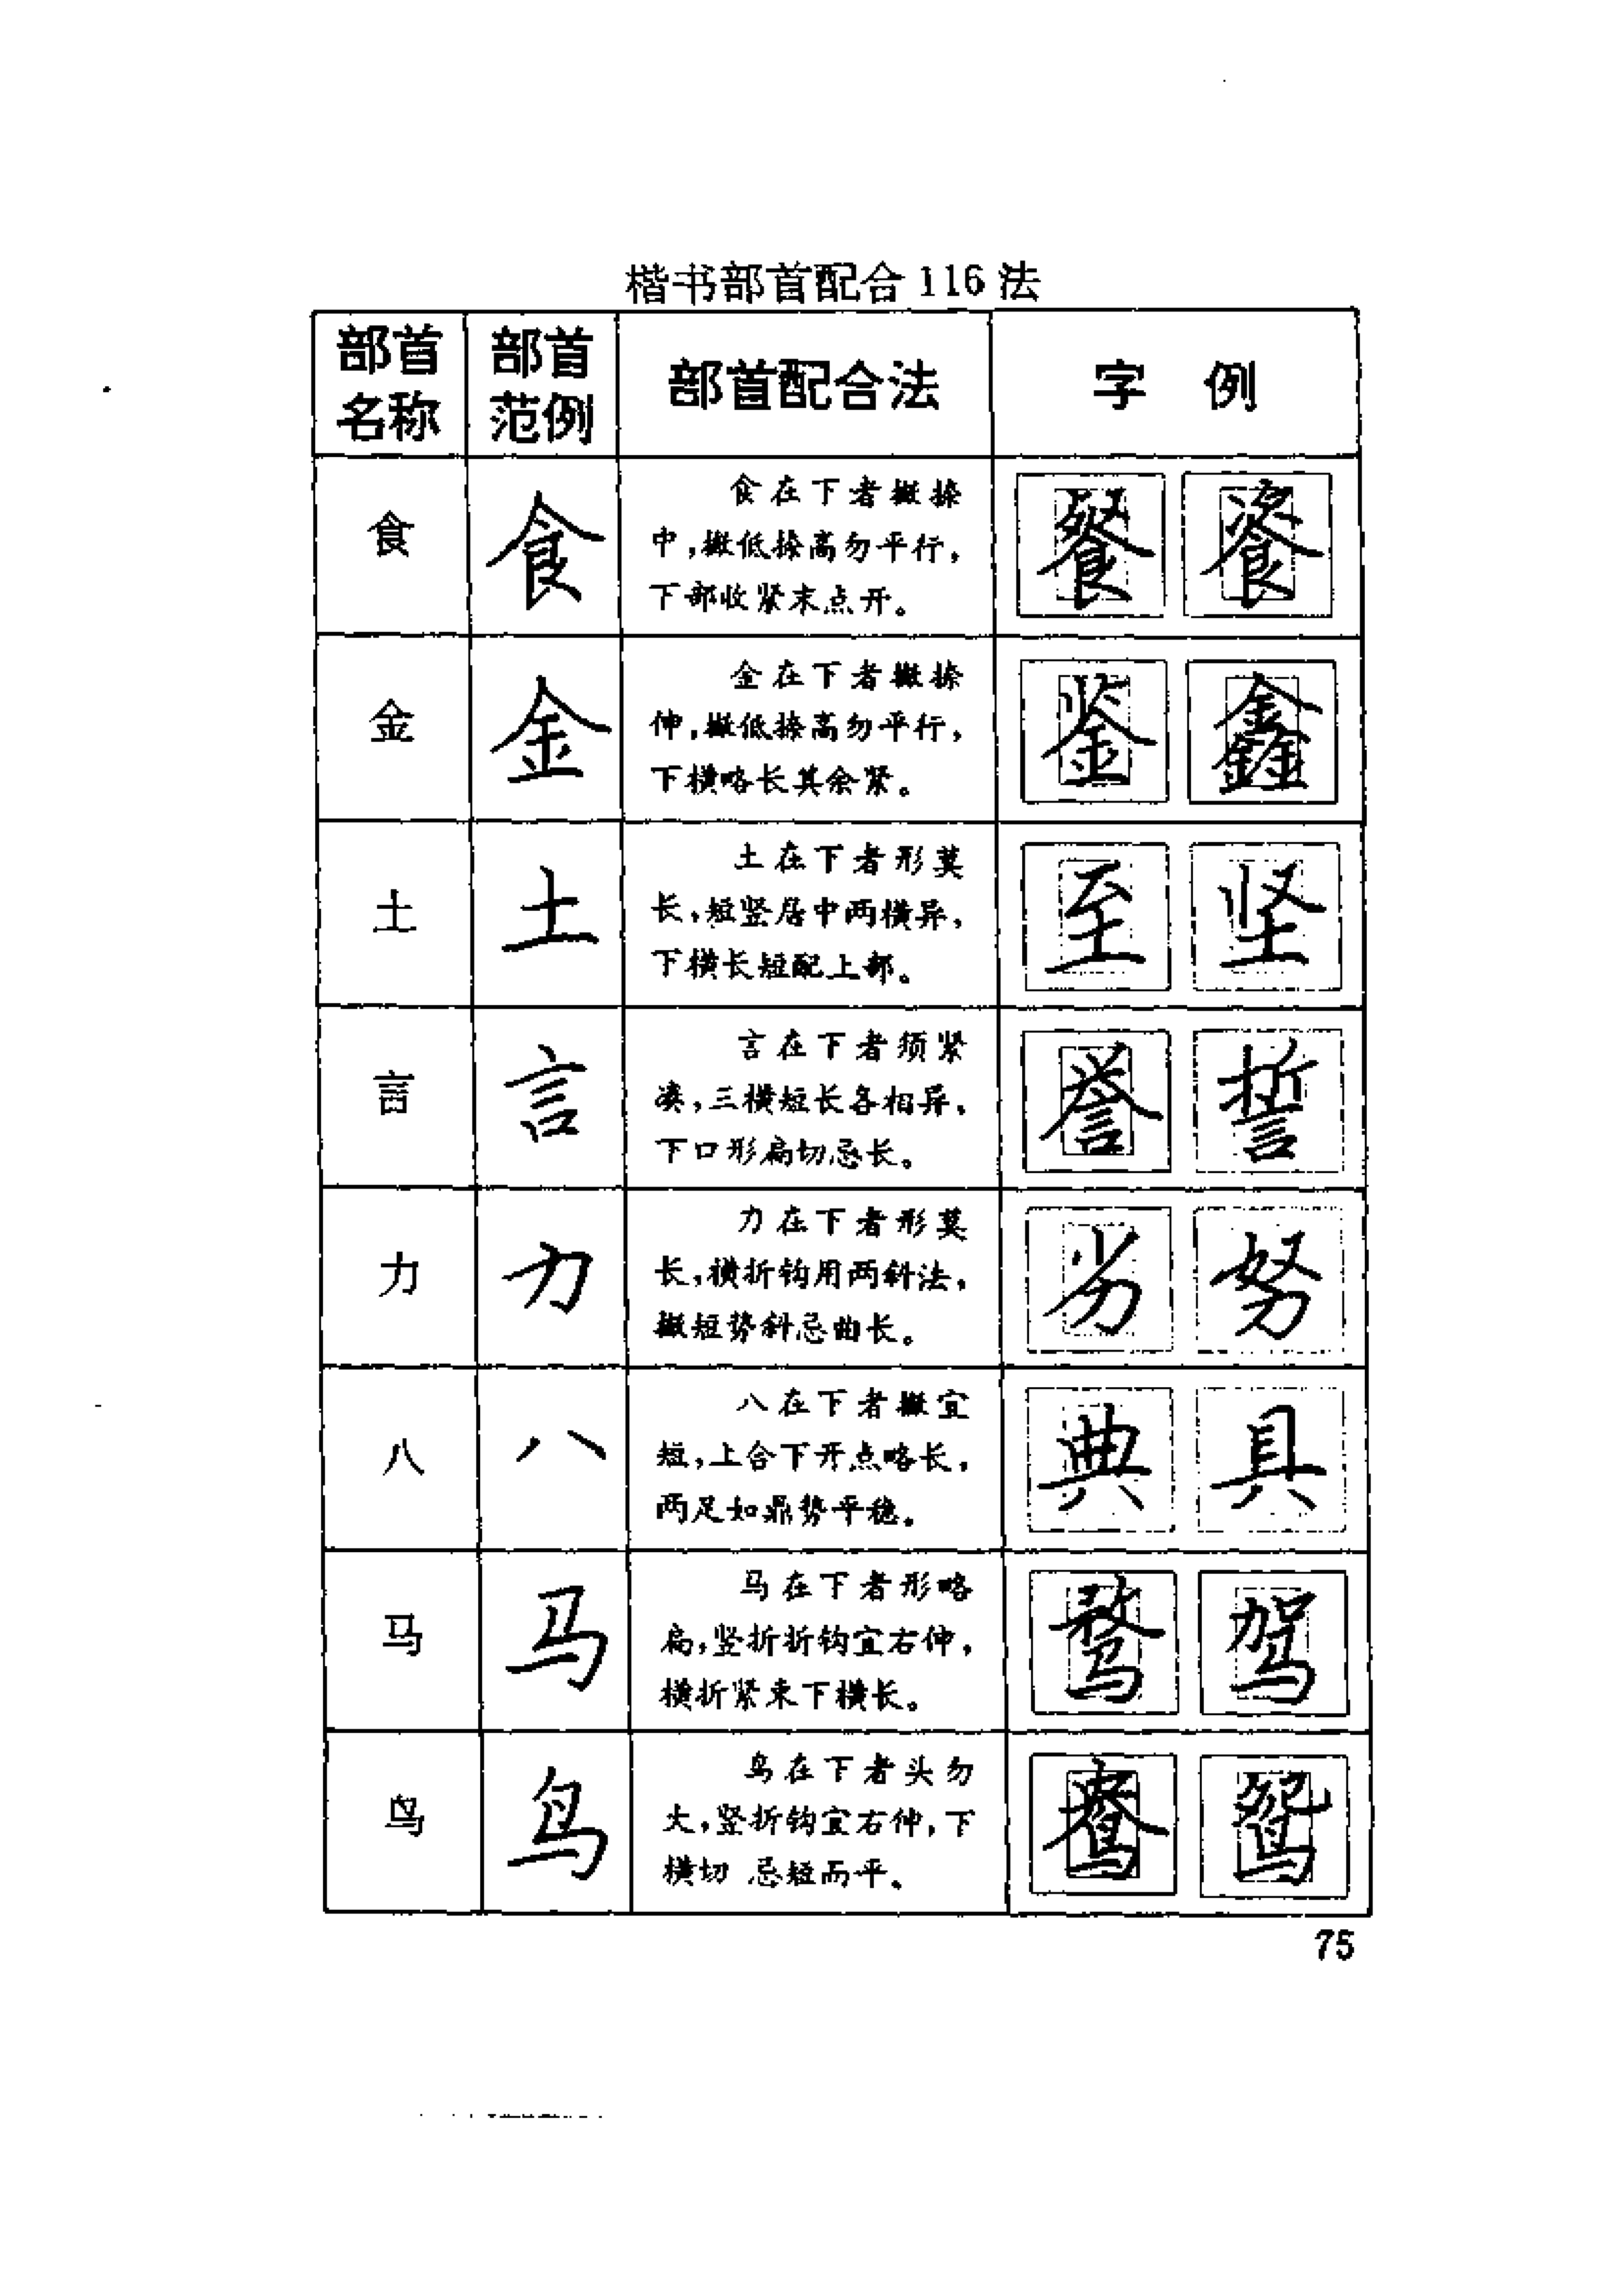 楷书部首配合116法
部首
名称
部首
范例
部首配合法
字 例
食
食
食在下者撇捺
中,撇低捺高勿平行,
下部收紧末点开。
餐 飧
金
金
金在下者撇捺
伸,撇低捺高勿平行,
下横略长其余紧。
鉴 鑫
土
土
土在下者形莫
长,短竖居中两横异,
下横长短配上部。
至 坚
言
言
言在下者须紧
凑,三横短长各相异,
下口形扁切忌长。
誉 誓
力
力
力在下者形莫
长,横折钩用两斜法,
撇短势斜忌曲长。
劣 努
八
八
八在下者撇宜
短,上合下开点略长,
两足如鼎势平稳。
典 具
马
马
马在下者形略
扁,竖折折钩宜右伸,
横折紧束下横长。
骜 驾
鸟
鸟
鸟在下者头勿
大,竖折钩宜右伸,下
横切忌短而平。
鸳
75